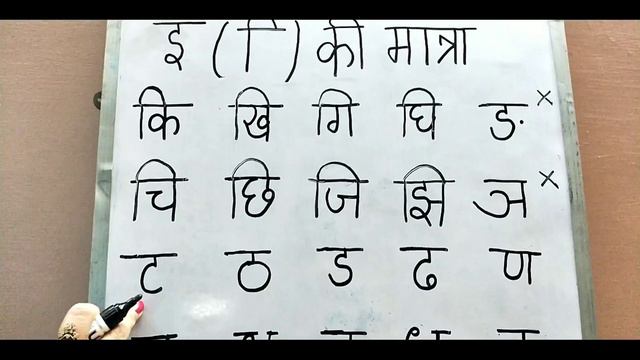 इ ( ि ) की मात्रा
कि खि गि घि ङ ×
चि छि जि झि ञ ×
ट ठ ड ढ ण